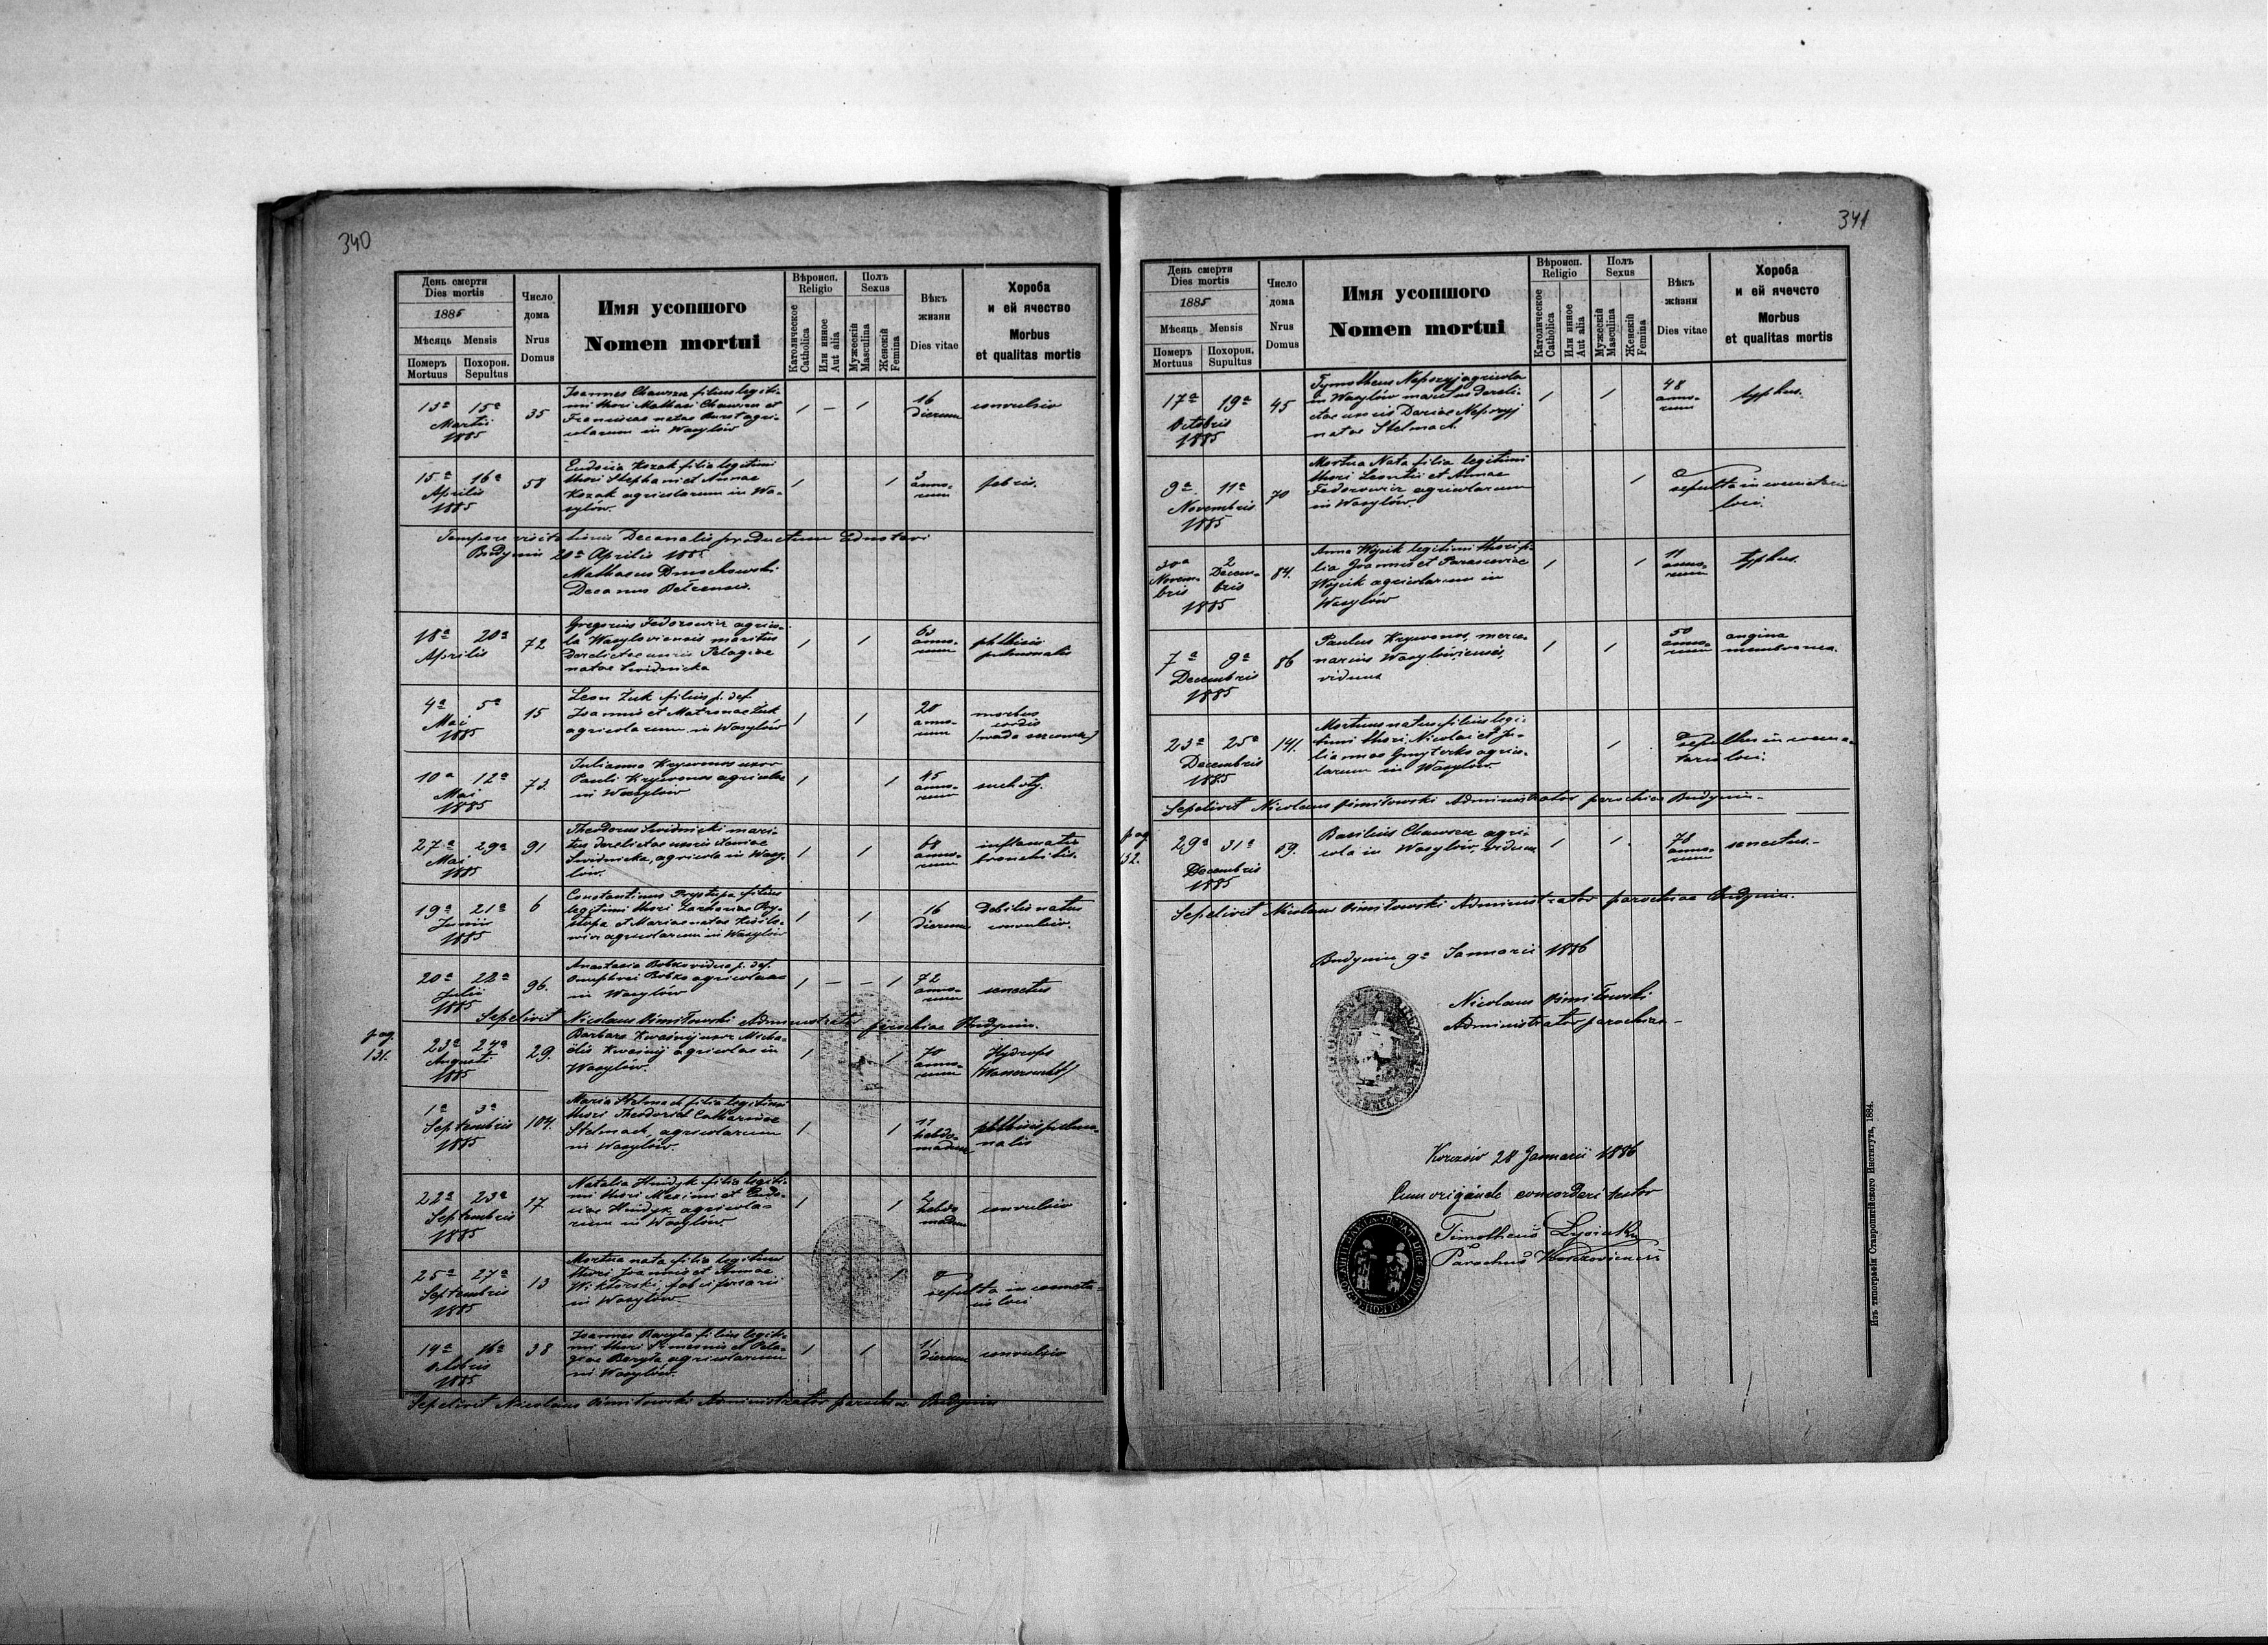 340
День смерти
Dies mortis
1885
Мѣсяць Mensis
Померъ
Mortuus
Похорон.
Sepultus
Число
дома
Nrus
Domus
Имя усопшого
Nomen mortui
Вѣроисп.
Religio
Католическое
Catholica
Или инное
Aut alia
Полъ
Sexus
Мужескій
Masculina
Женскій
Femina
Вѣкъ
жизни
Dies vitae
Хороба
и ей ячество
Morbus
et qualitas mortis
13ª 15ª
Martii
1885
35
Joannes Chawrza filius legiti-
mi thori Mathaei Chawrza et
Franciscae natae agri-
colarum in Wasylów
1 – 1
16
dierum
convulsio
15ª 16ª
Aprilis
1885
58
Eudocia Kozak filia legitimi
thori Stephani et Annae
Kozak agricolarum in Wa-
sylów.
1 1
3
anno-
rum
febris.
Tempore visitationis Decanalis productum adnotavi
Budynin 20ª Aprilis 1885
Mathaeus
Decanus Bełzensis.
18ª 20ª
Aprilis
72
Gregorius Fedorowicz agrico-
la Wasyloviensis maritus
derelictae uxoris Pelagiae
natae Swidnicka
1 1
63
anno-
rum
phthisis
pulmonalis
4ª 5ª
Mai
1885
15
Leon Żuk filius p. def.
Joannis et Matronae Żuk
agricolarum in Wasylów
1 1
20
anno-
rum
morbus
cordis
(wada sercowa)
10ª 12ª
Mai
1885
73.
Julianna Krywonos uxor
Pauli Krywonos agricolae
in Wasylow
1 1
45
anno-
rum
suchoty.
27ª 29ª
Mai
1885
91
Theodorus Swidnicki mari-
tus derelictae uxoris
Swidnicka, agricola in Wasy-
low.
1 1
68
anno-
rum
inflamatio
bronchitis.
19ª 21ª
Junii
1885
6
Constantinus Prystupa filius
legitimi thori Zachariae Pry-
stupa et Mariae natae
agricolarum in Wasylów
1 1
16
dierum
Debilis natus
convulsio.
20ª 22ª
Julii
1885
96.
Anastasia Bobko vidua p. def.
Onuphrei Bobko agricolae
in Wasylów
1 – – 1
72
anno-
rum
senectus
Sepelivit Nicolaus Ośmiłowski Administrator parochiae Budynin.
pag
131.
23ª 24ª
Augusti
1885
29.
Barbara Kwaśnyj uxor Micha-
elis Kwaśnyj agricolae in
Wasylów.
1 1
70
anno-
rum
Hydrops
(Wassersucht)
1ª 3ª
Septembris
1885
104.
Maria Stelmach filia legitimi
thori Theodori et Catharinae
Stelmach, agricolarum
in Wasylów.
1 1
11
hebdo-
madum
phthisis pulmo-
nalis
22ª 23ª
Septembris
1885
17.
Natalia Hundyk filia legiti-
mi thori Maximi et Eudo-
ciae Hundyk agricola-
rum in Wasylów.
1 1
2
hebdo
madum
convulsio
25ª 27ª
Septembris
1885
13
Mortua nata filia legitimi
thori Joannis et Annae
Wiktorski, fabri ferrarii
in Wasylów.
1
0
sepulta in cemete-
rio loci
14ª 16ª
Octobris
1885
38
Joannes Baryła filius legiti-
mi thori Simeonis et Pela-
giae Baryła agricolarum
in Wasylów.
1 1
11
dierum
convulsio
Sepelivit Nicolaus Ośmiłowski Administrator parochiae Budynin
341
День смерти
Dies mortis
1885
Мѣсяць Mensis
Померъ
Mortuus
Похорон.
Supultus
Число
дома
Nrus
Domus
Имя усопшого
Nomen mortui
Вѣроисп.
Religio
Католическое
Catholica
Или инное
Aut alia
Полъ
Sexus
Мужескій
Masculina
Женскій
Femina
Вѣкъ
жизни
Dies vitae
Хороба
и ей ячечсто
Morbus
et qualitas mortis
17ª 19ª
Octobris
1885
45
Tymotheus Neporyj agricola
in Wasylów maritus dereli-
ctae uxoris Dariae Neporyj
natae Stelmach.
1 1
48
anno-
rum
typhus.
9ª 11ª
Novembris
1885
70
Mortua Nata filia legitimi
thori Leontii et Annae
Fedorowicz agricolarum
in Wasylów.
1
0
sepulta in cemeterio
loci.
30ª
Novem-
bris
2
Decem-
bris
1885
84.
Anna Wójcik legitimi thori fi-
lia Joannis et Parasceviae
Wójcik agricolarum in
Wasylów
1 1
11
anno-
rum
typhus.
7ª 9ª
Decembris
1885
86
Paulus Krywonos, merce-
narius Wasylówiensis,
viduus
1 1
50
anno-
rum
angina
membranea.
23ª 25ª
Decembris
1885
141.
Mortuus natus filius legi-
timi thori Nicolai et Ju-
liannae agrico-
larum in Wasylów.
1
0
sepultus in ceme-
terio loci.
Sepelivit Nicolaus Ośmiłowski Administrator parochiae Budynin.
pag
132.
29ª 31ª
Decembris
1885
59.
Basilius Chawrza agri-
cola in Wasylów, viduus
1 1.
78
anno-
rum
senectus.
Sepelivit Nicolaus Ośmiłowski Administrator parochiae Budynin.
Budynin 9ª Januarii 1886
Nicolaus Ośmiłowski
Administrator parochiae
Korczów 28 Januarii 1886
Cum originale concordari testor
Timotheus
Parochus Korczoviensis
Изъ типографіи Ставропигійского Института, 1884.